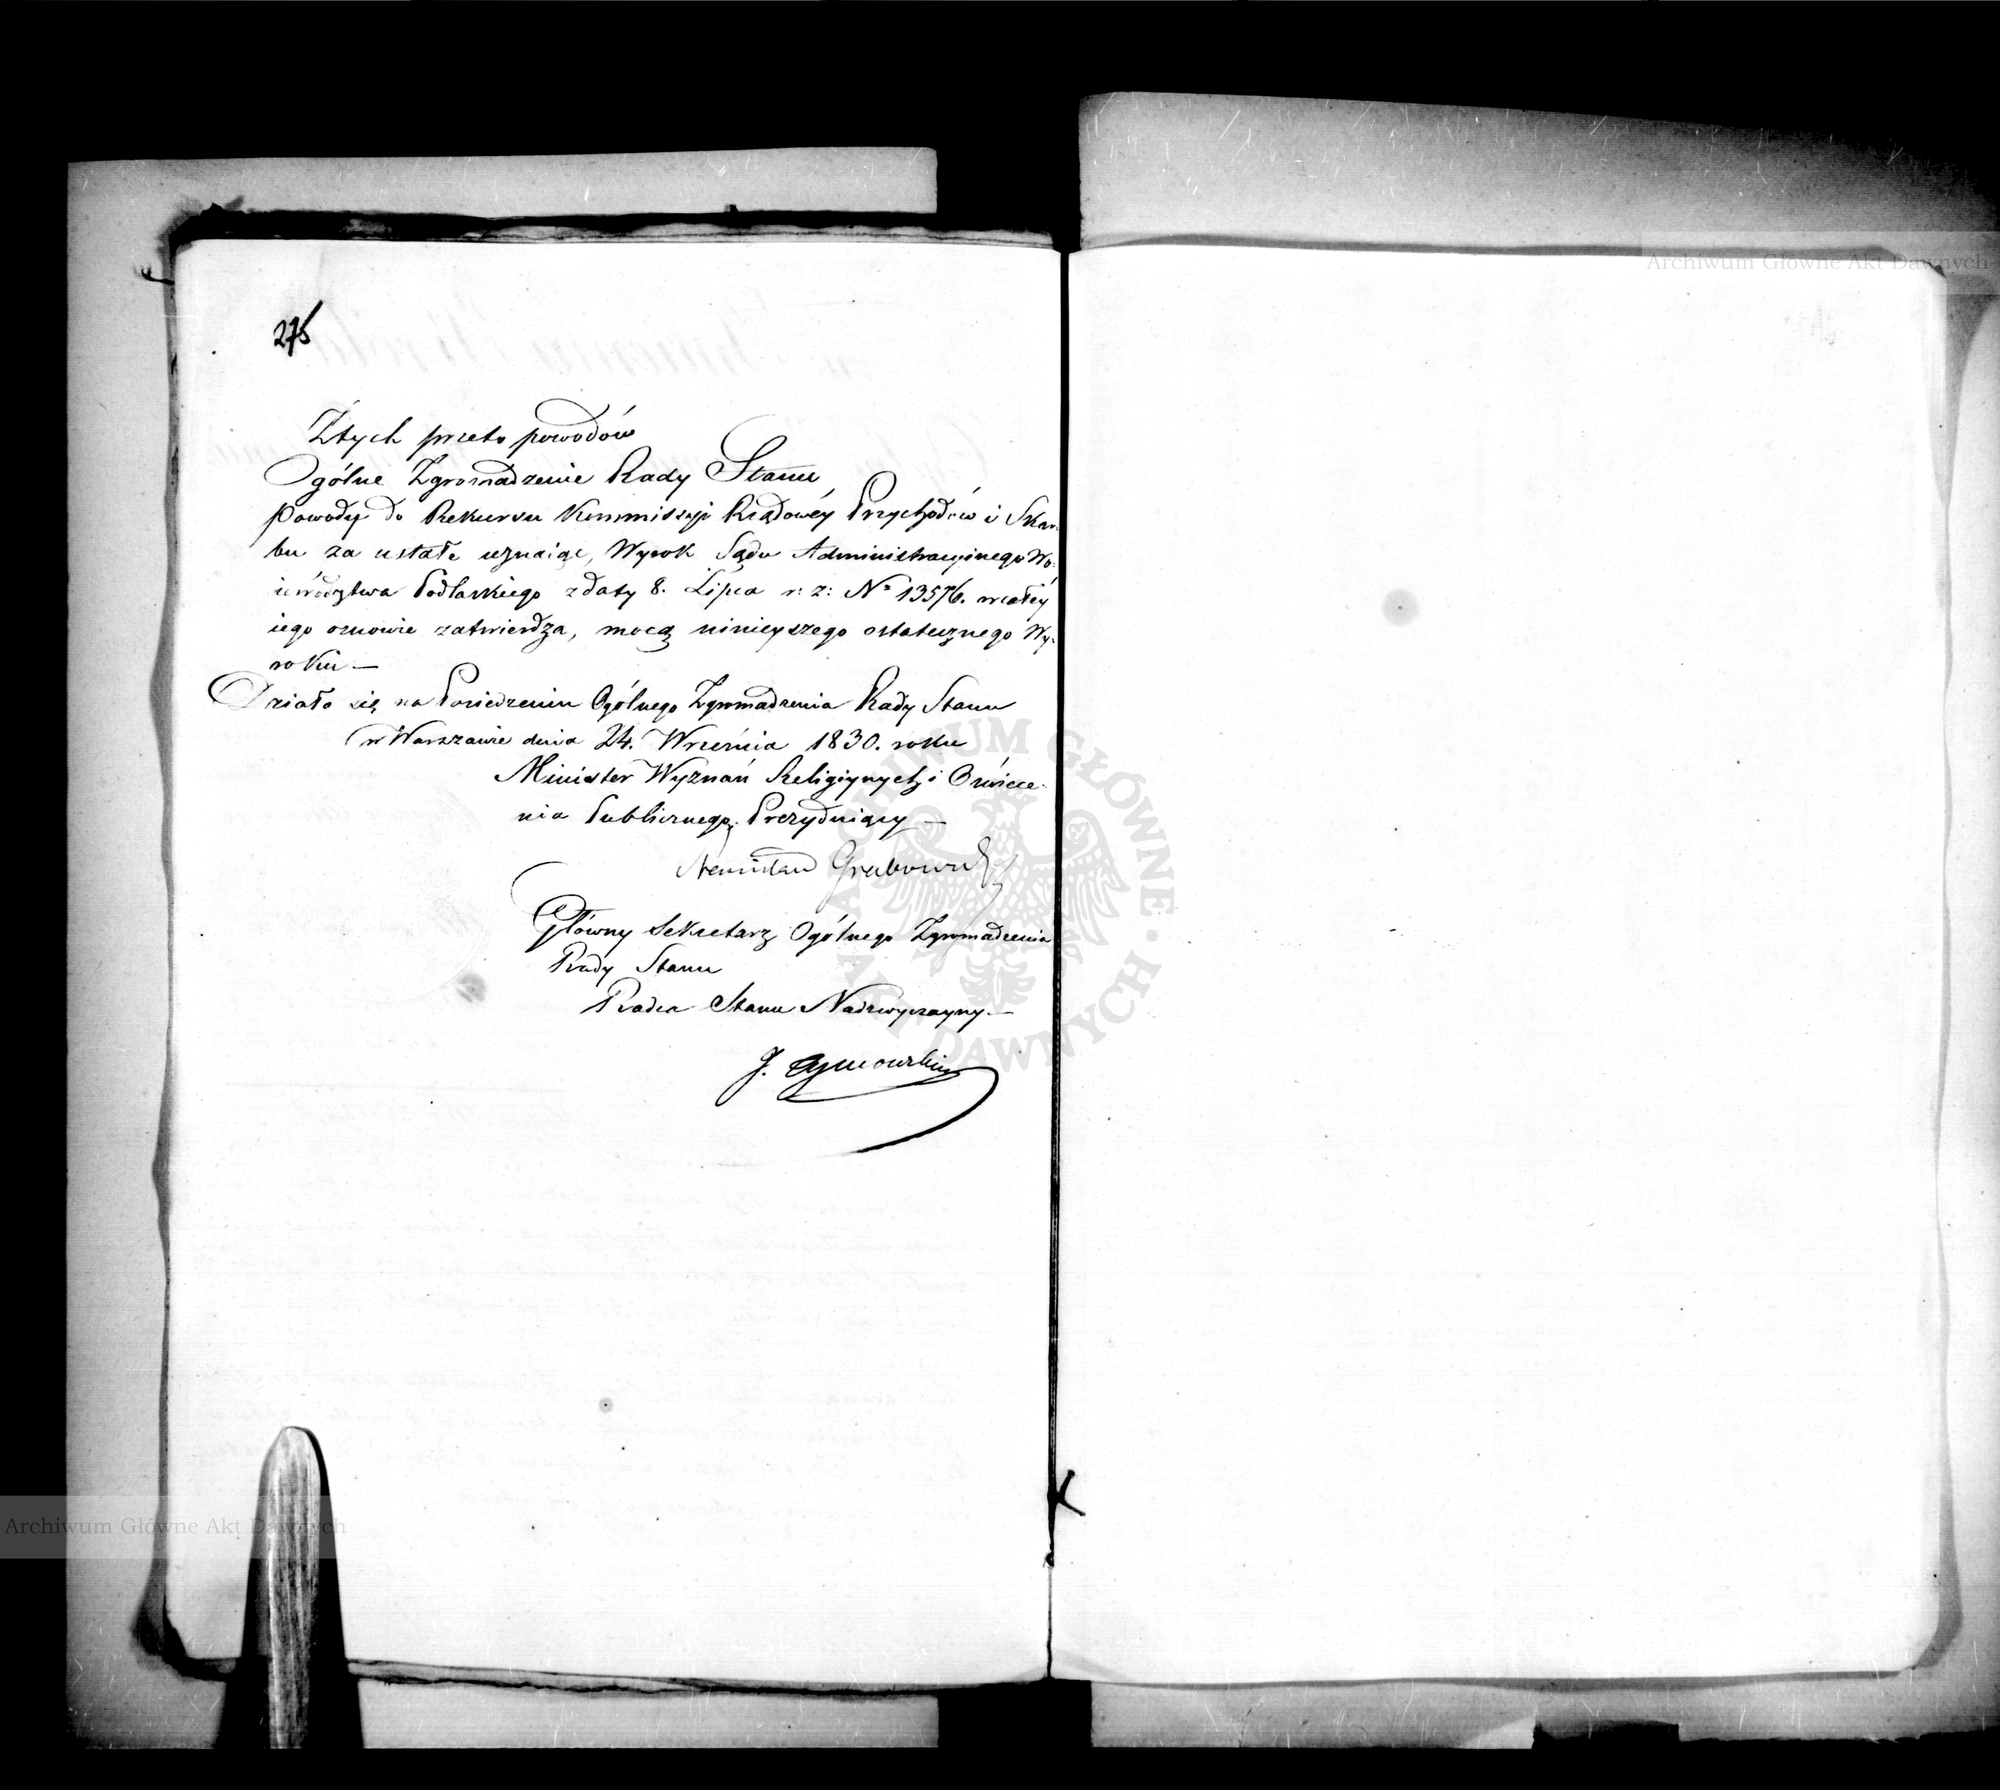 275
Z tych przeto powodów
Ogólne Zgromadzenie Rady Stanu
Powody do Rekursu Kommissyi Rządowéy Przychodów i Skar-
bu za ustałe uznaiąc, Wyrok Sądu Administracyinego Wo-
iewództwa Podlaskiego z daty 8. Lipca r: z: No 13576. w całéy
iego osnowie zatwierdza, mocą ninieyszego ostatecznego Wy-
roku —
Działo się na Posiedzeniu Ogólnego Zgromadzenia Rady Stanu
w Warszawie dnia 24. Września 1830. roku
Minister Wyznań Religiynych i Oświece-
nia Publicznego, Prezyduiący —
Stanisław Grabowski
Główny Sekretarz Ogólnego Zgromadzenia
Rady Stanu
Radca Stanu Nadzwyczayny —
J. Tymowski
Archiwum Główne Akt Dawnych
ARCHIWUM GŁÓWNE AKT DAWNYCH
Archiwum Główne Akt Dawnych